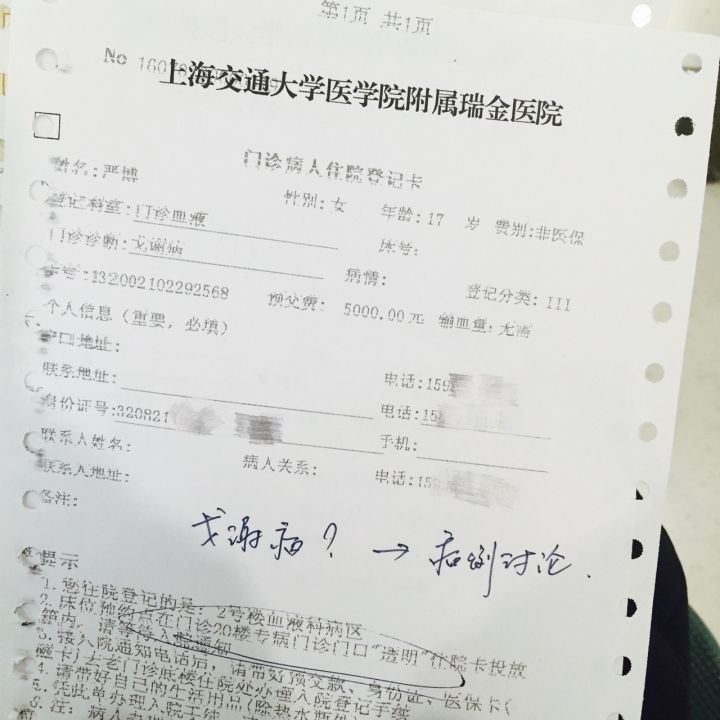 第1页 共1页
No
上海交通大学医学院附属瑞金医院
门诊病人住院登记卡
姓名:严搏 性别:女 年龄:17 岁 费别:非医保
登记科室:门诊血液 床号:
门诊诊断:戈谢病 病情: 登记分类:III
卡号:132002102292568 预交费: 5000.00元 输血量:无需
个人信息(重要,必填)
户口地址:
联系地址: 电话:159
身份证号:320821 电话:15
联系人姓名: 病人关系: 手机:
联系人地址: 电话:159
备注:
戈谢病? → 病例讨论.
提示
1. 您住院登记的是: 2号楼血液科病区
2. 床位预约点在门诊20楼专病门诊门口"透明"住院卡投放
箱内, 请等等入院通知
3. 接入院通知电话后, 请带好预交款、身份证、医保卡(
磁卡)去老门诊底楼住院处办理入院登记手续
4. 请带好自己的生活用品(除热水瓶外)
5. 凭此单办理入院手续
6. 注: 病人